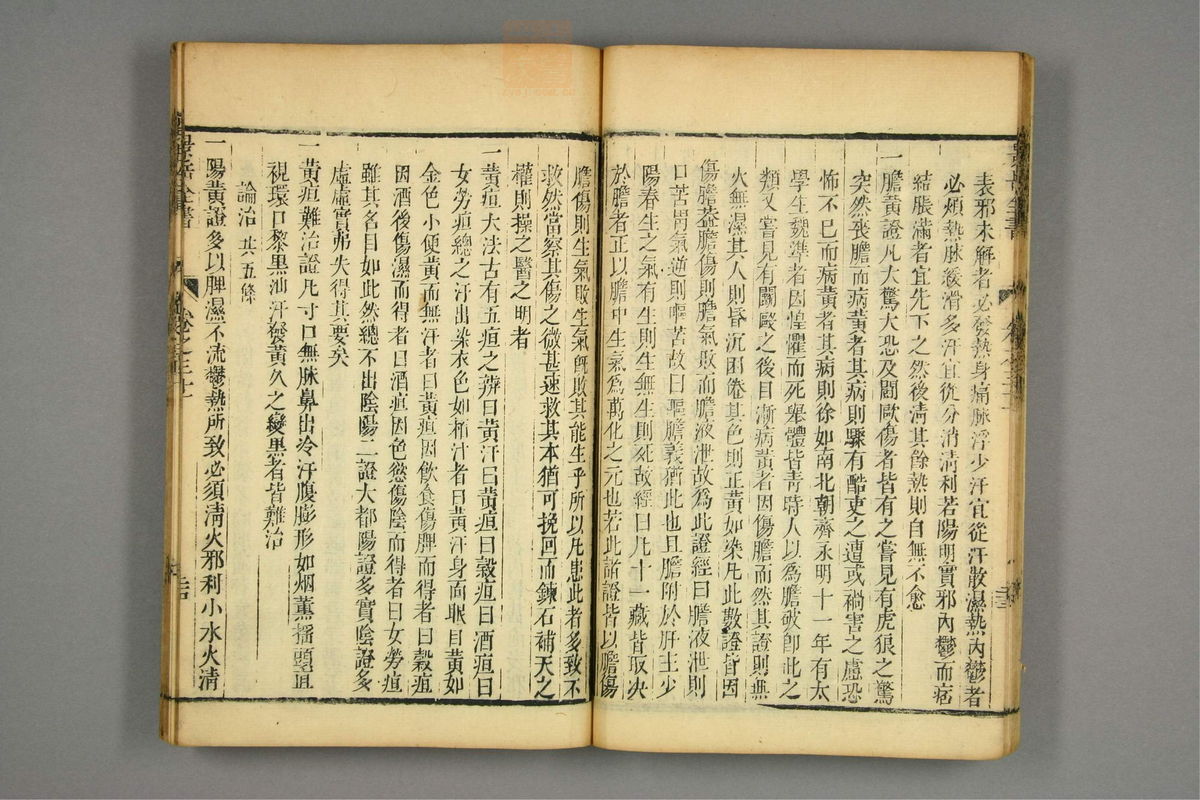 表邪未解者必發熱身痛脉浮少汗宜從汗散濕熱內鬱者
必煩熱脉緩滑多汗宜從分消清利若陽明實邪內鬱而痞
結脹滿者宜先下之然後清其餘熱則自無不愈
一膽黃證凡大驚大恐及鬭毆傷者皆有之嘗見有虎狼之驚
突然喪膽而病黃者其病則驟有酷吏之遭或禍害之慮恐
怖不已而病黃者其病則徐如南北朝齊永明十一年有太
學生魏準者因惶懼而死舉體皆青時人以爲膽破卽此之
類又嘗見有鬭毆之後日漸病黃者因傷膽而然其證則無
火無濕其人則昏沉困倦其色則正黃如染凡此數證皆因
傷膽葢膽傷則膽氣敗而膽液泄故爲此證經曰膽液泄則
口苦胃氣逆則嘔苦故曰嘔膽義猶此也且膽附於肝主少
陽春生之氣有生則生無生則死故經曰凡十一藏皆取決
於膽者正以膽中生氣爲萬化之元也若此諸證皆以膽傷
膽傷則生氣敗生氣旣敗其能生乎所以凡患此者多致不
救然當察其傷之微甚速救其本猶可挽回而鍊石補天之
權則操之醫之明者
一黃疸大法古有五疸之辨曰黃汗曰黃疸曰穀疸曰酒疸曰
女勞疸總之汗出染衣色如栢汁者曰黃汗身面眼目黃如
金色小便黃而無汗者曰黃疸因飲食傷脾而得者曰穀疸
因酒後傷濕而得者曰酒疸因色慾傷陰而得者曰女勞疸
雖其名目如此然總不出陰陽二證大都陽證多實陰證多
虛虛實弗失得其要矣
一黃疸難治證凡寸口無脉鼻出冷汗腹膨形如烟薰摇頭直
視環口黎黑油汗發黃久之變黑者皆難治
論治 共五條
一陽黃證多以脾濕不流鬱熱所致必須清火邪利小水火清